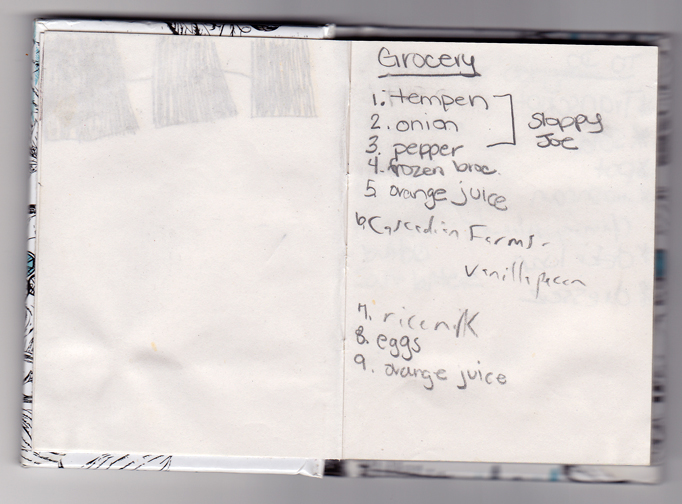 Grocery
1. tempen
2. onion
3. pepper
Sloppy
Joe
4. frozen broc.
5. orange juice
6. Cascadian Farms -
Vanilla pecan
7. rice milk
8. eggs
9. orange juice